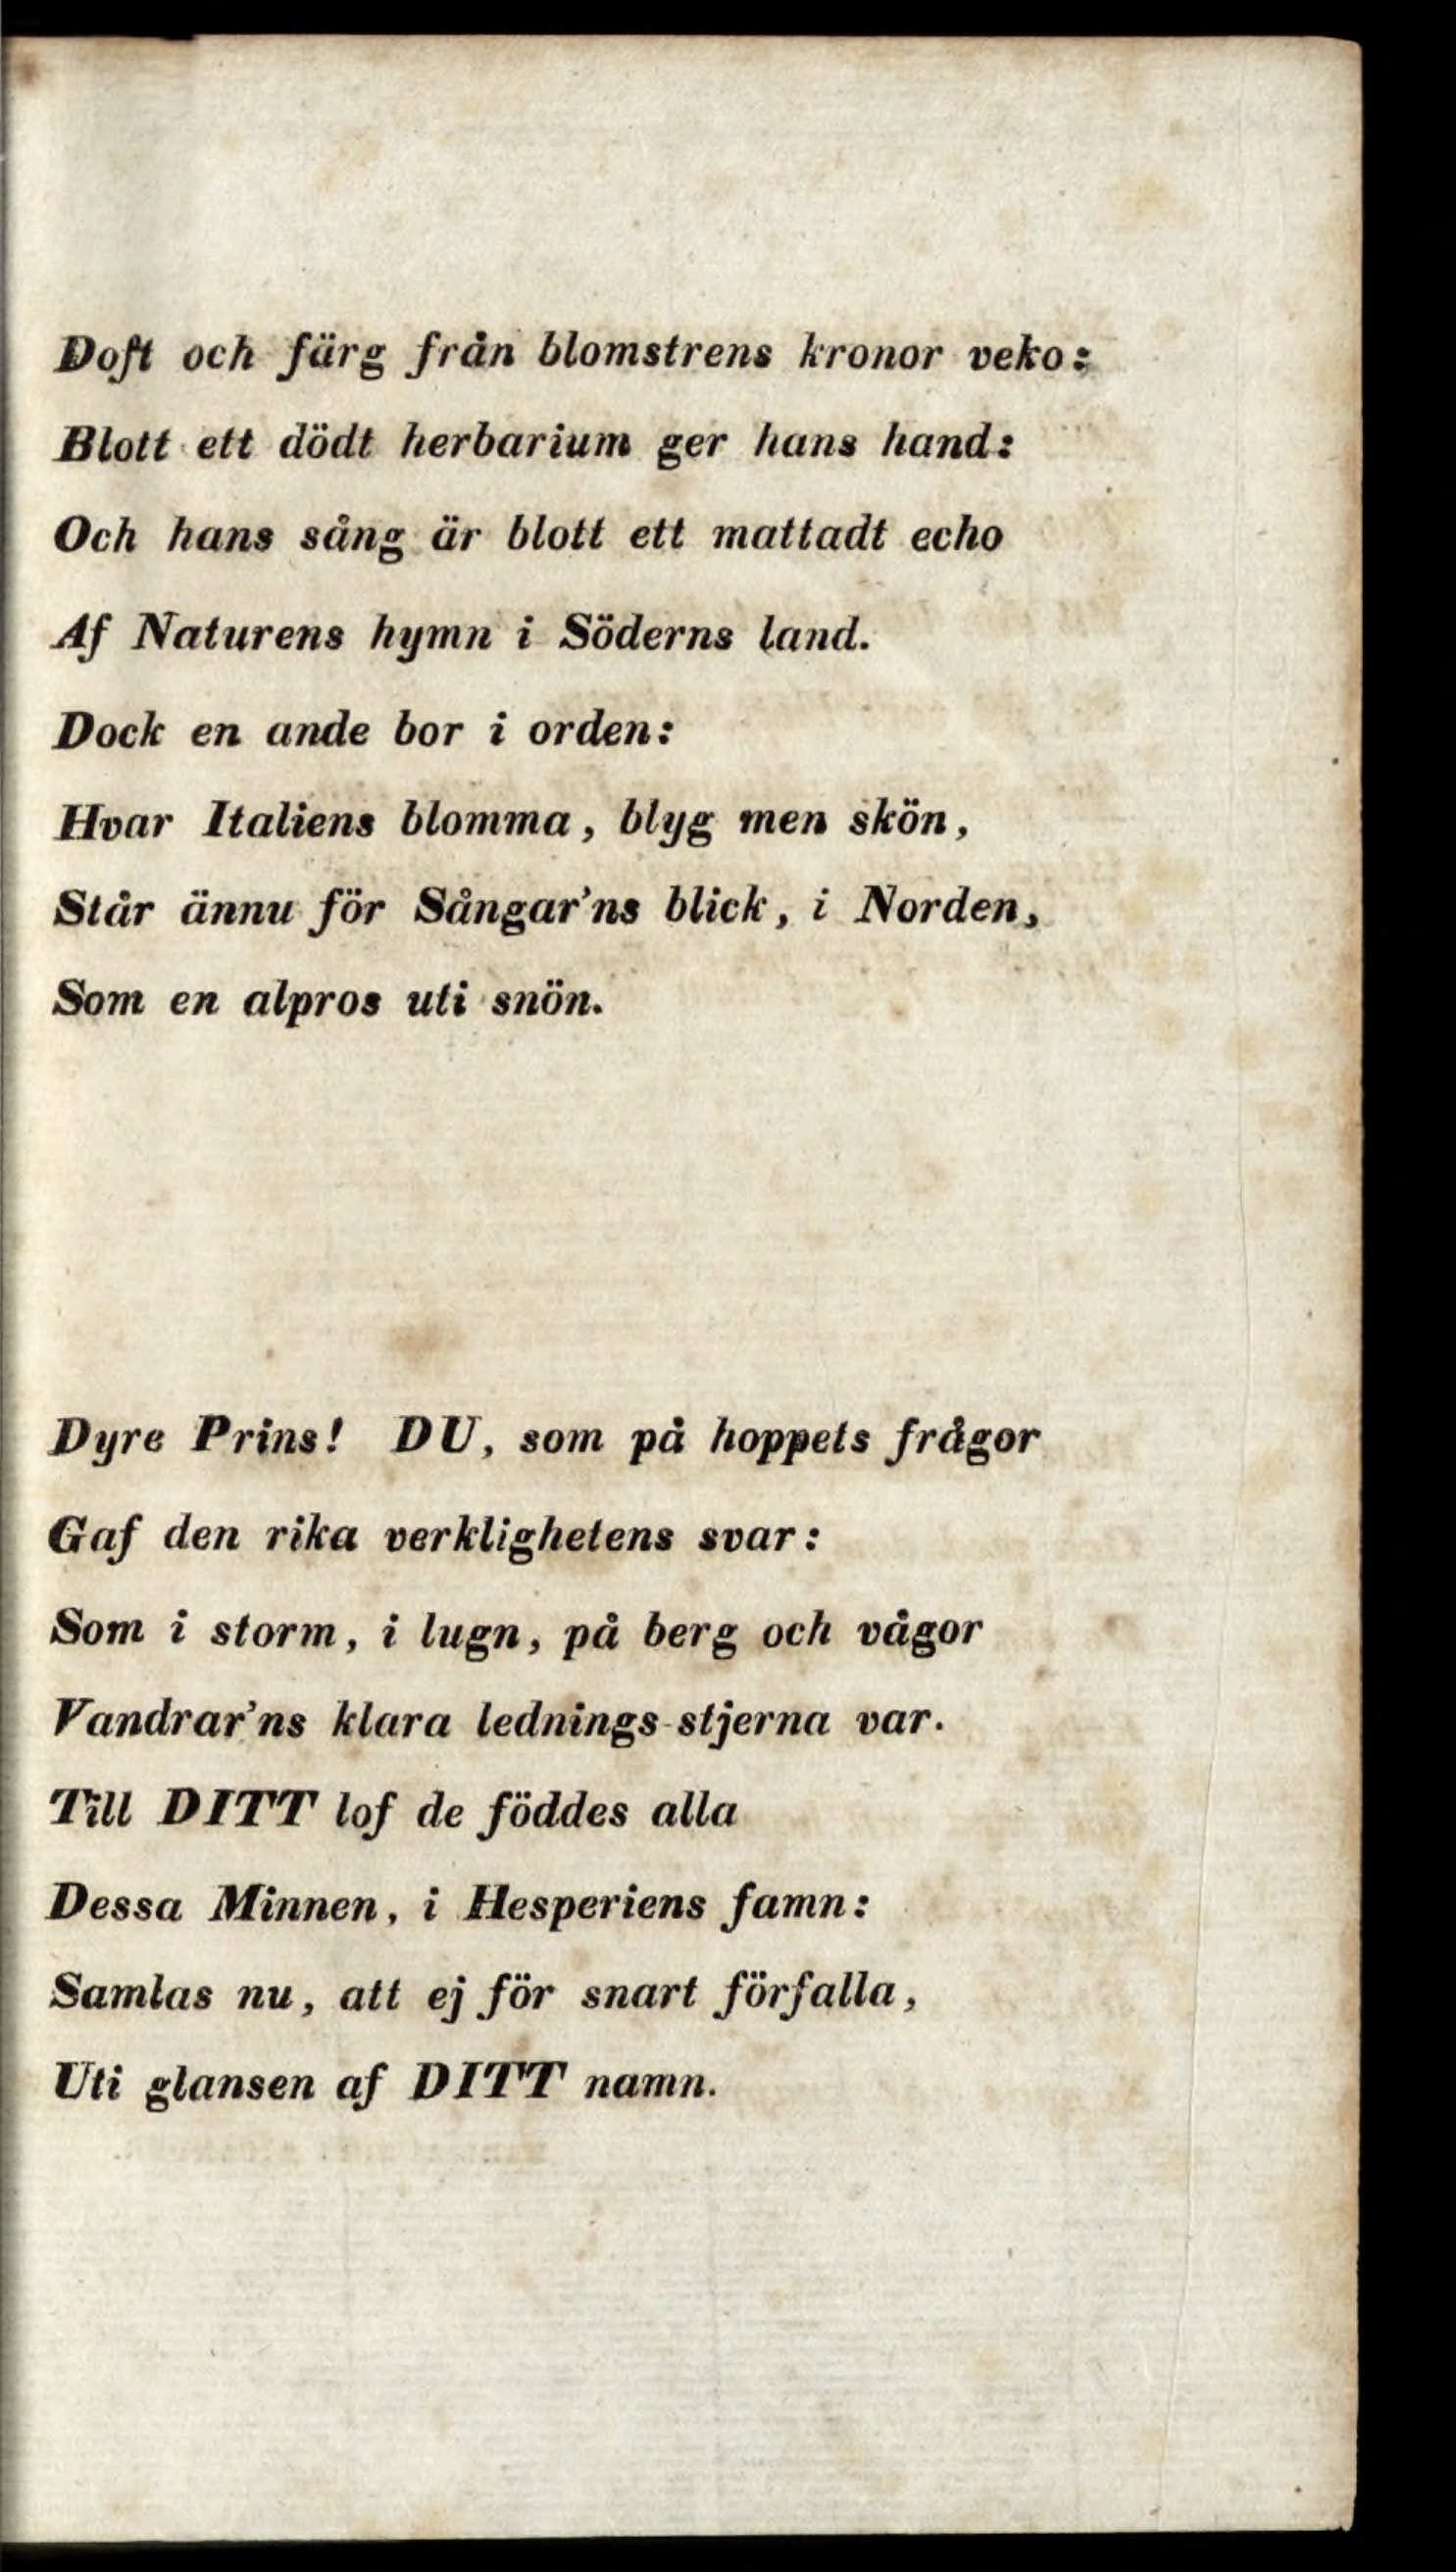 Doft och färg från blomstrens kronor veko:
Blott ett dödt herbarium ger hans hand:
Och hans sång är blott ett mattadt echo
Af Naturens hymn i Söderns land.
Dock en ande bor i orden:
Hvar Italiens blomma, blyg men skön,
Står ännu för Sångar'ns blick, i Norden,
Som en alpros uti snön.
Dyre Prins! DU, som på hoppets frågor
Gaf den rika verklighetens svar:
Som i storm, i lugn, på berg och vågor
Vandrar'ns klara lednings-stjerna var.
Till DITT lof de föddes alla
Dessa Minnen, i Hesperiens famn:
Samlas nu, att ej för snart förfalla,
Uti glansen af DITT namn.